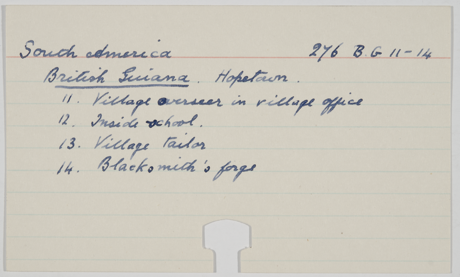 South America 276 B.G 11-14
British Guiana. Hopetown.
11. Village overseer in village office
12. Inside school.
13. Village tailor
14. Blacksmith's forge